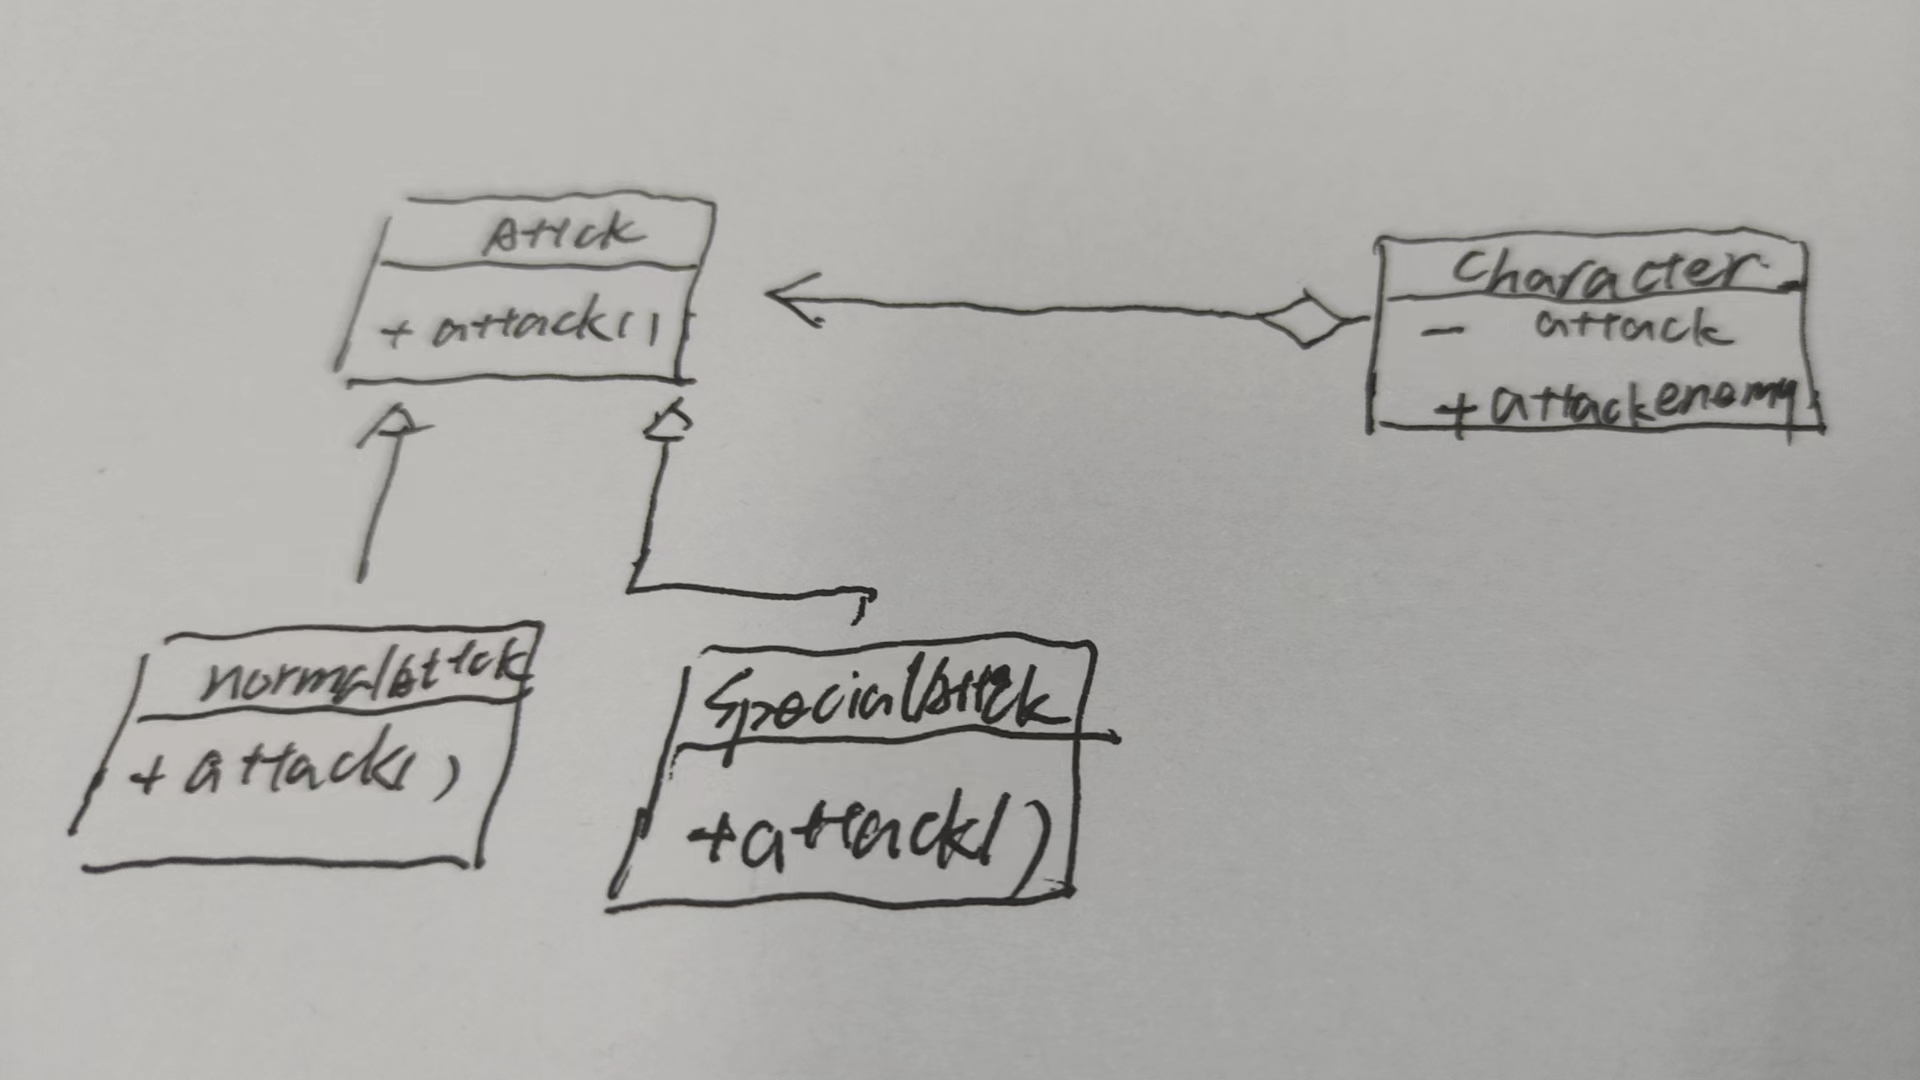 Attck
+ attack()
Character
- attack
+ attackenemy
normalAttck
+ attack()
SpecialAttck
+ attack()